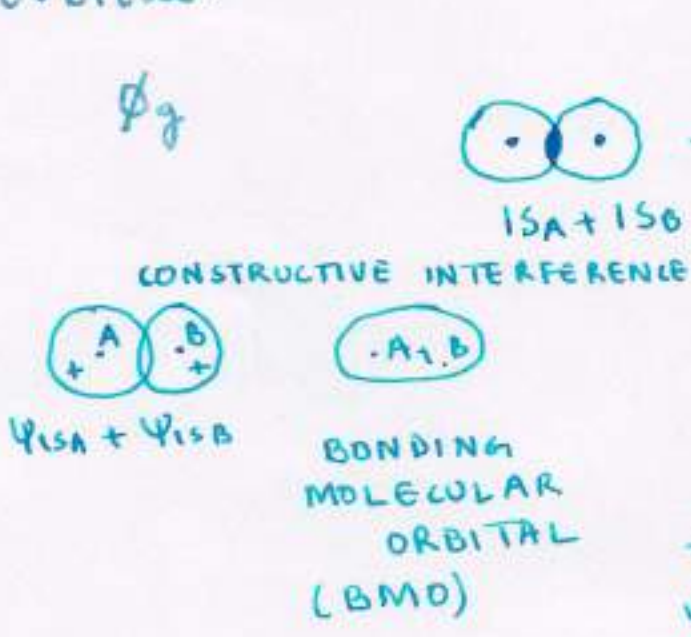 ϕg
1SA + 1SB
CONSTRUCTIVE INTERFERENCE
A B
+ +
.A+.B
Ψ1SA + Ψ1SB
BONDING
MOLECULAR
ORBITAL
(BMO)